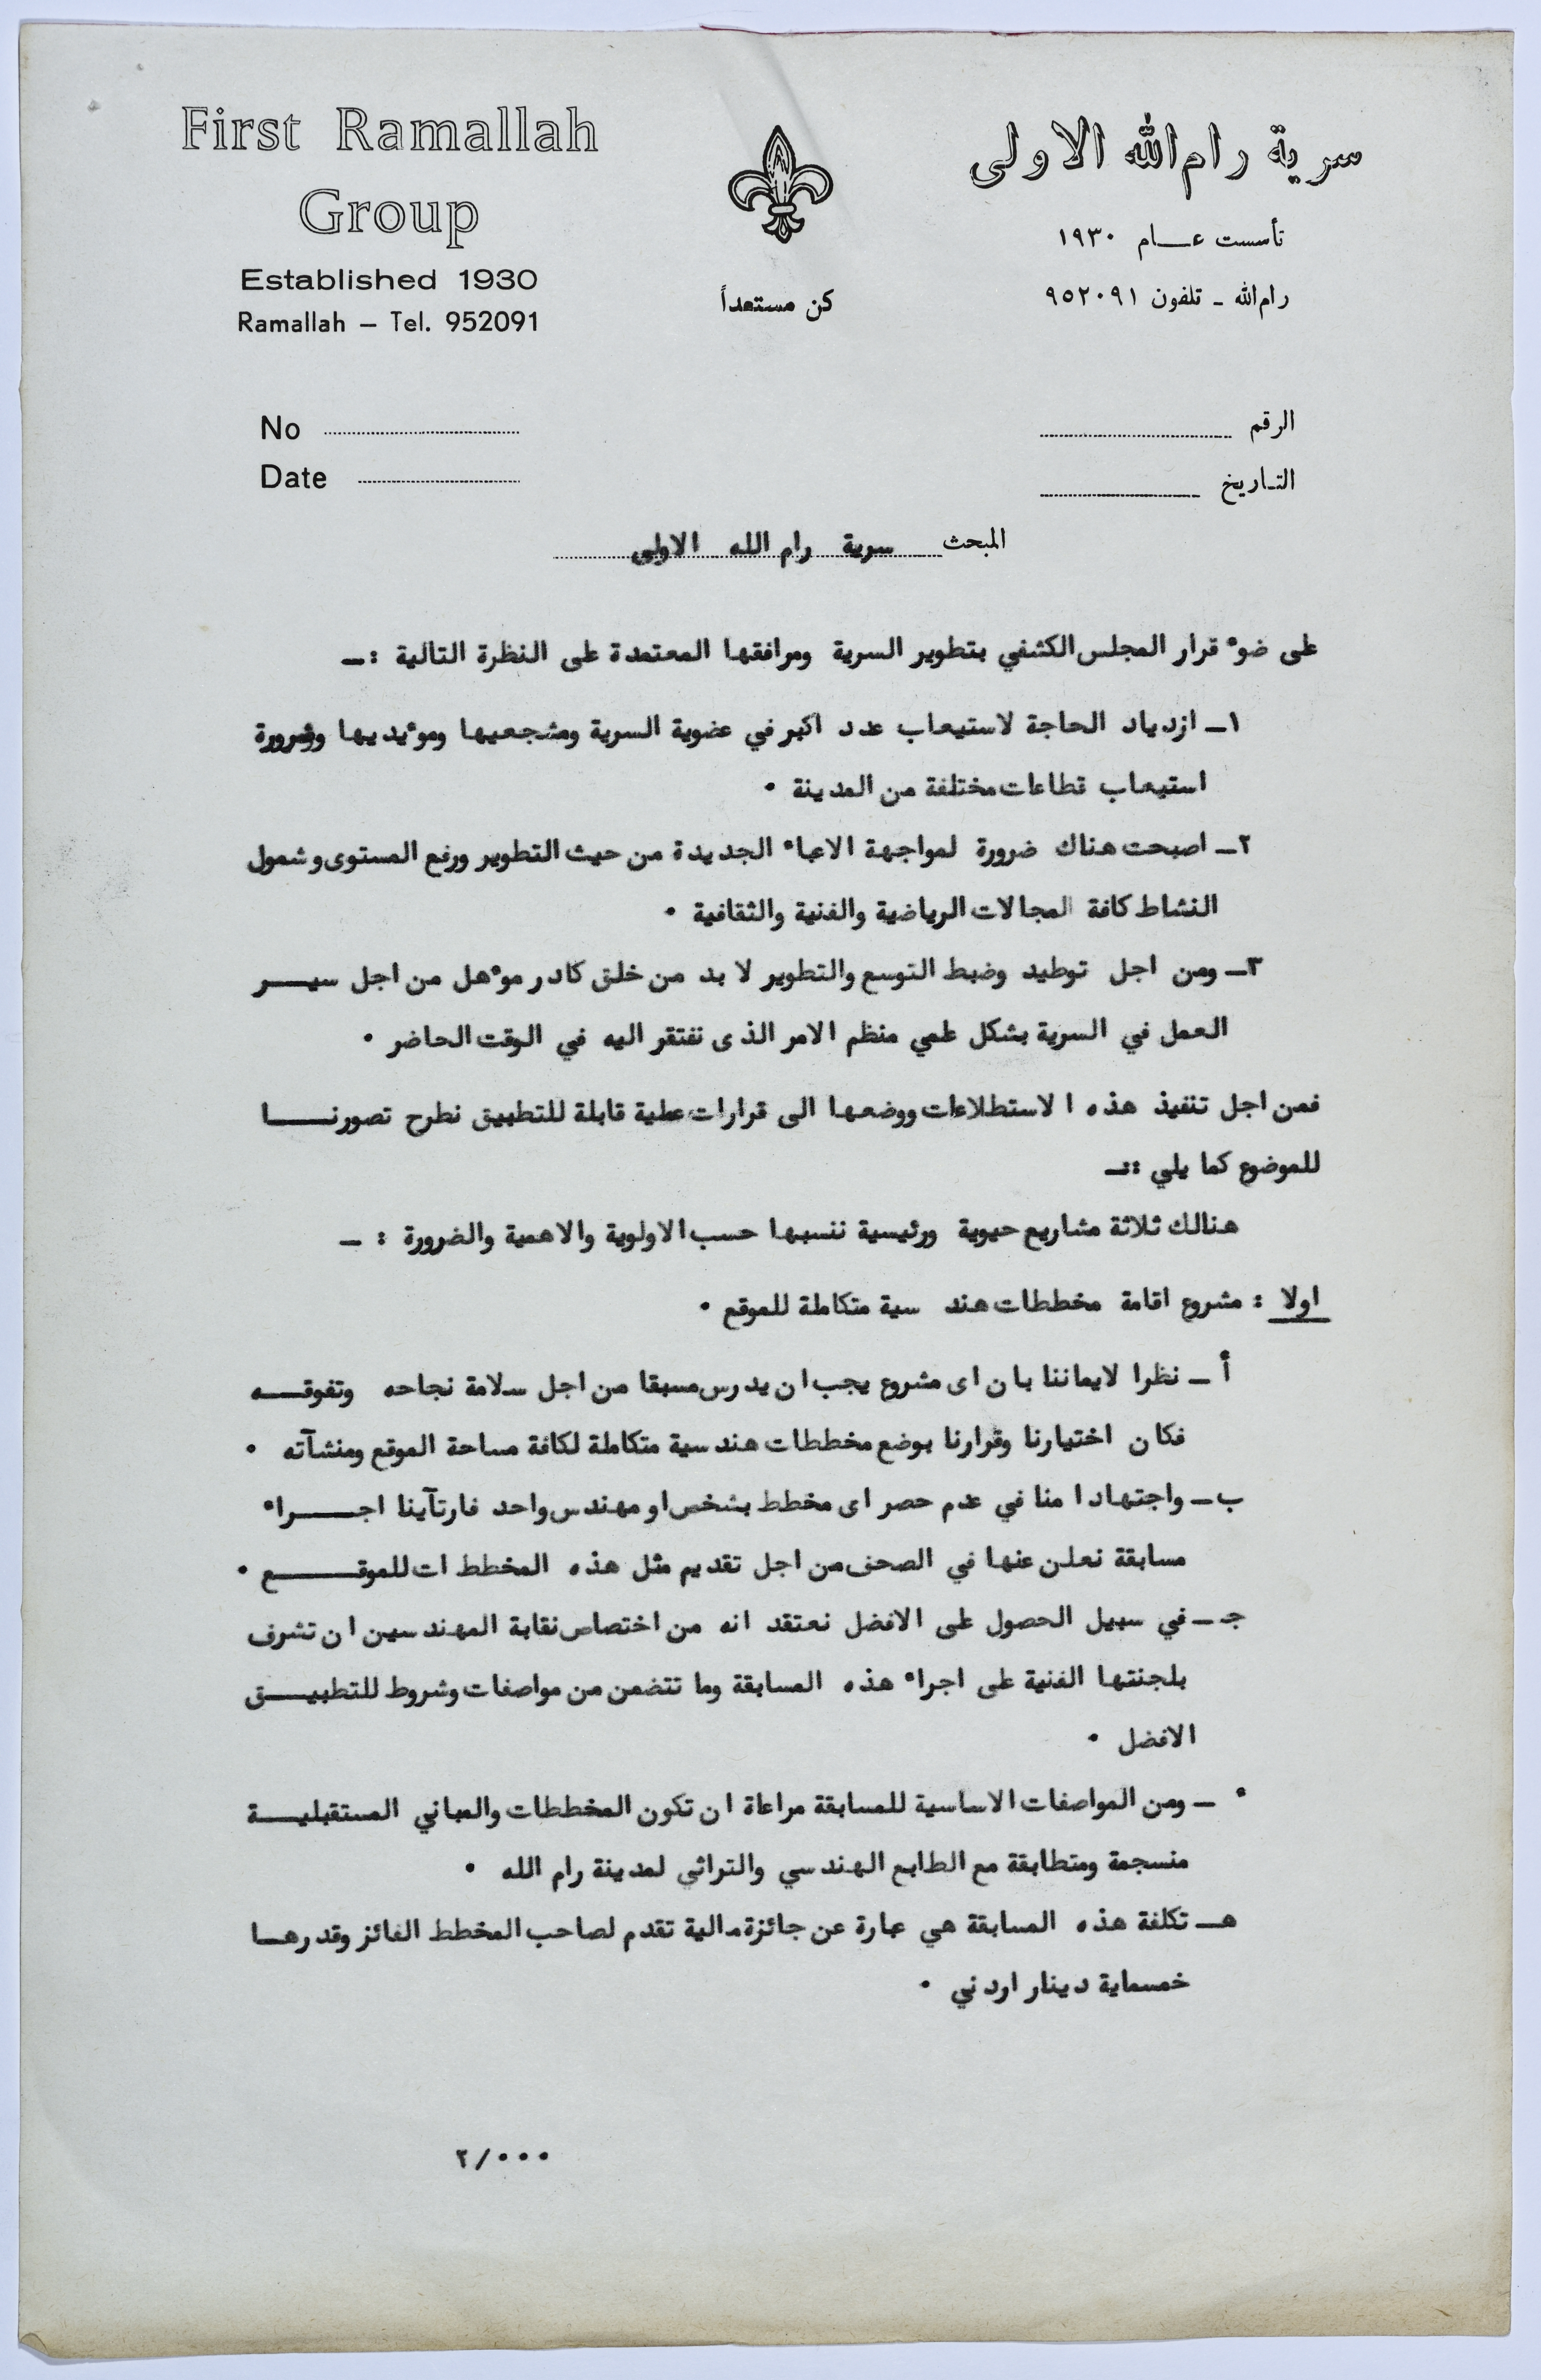 First Ramallah
Group
Established 1930
Ramallah – Tel. 952091
كن مستعداً
سرية رام الله الاولى
تأسست عـام ١٩٣٠
رام الله ـ تلفون ٩٥٢٠٩١
No
Date
الرقم
التاريخ
المبحث سرية رام الله الاولى
على ضوء قرار المجلس الكشفي بتطوير السرية ومرافقها المعتمدة على النظرة التالية :ـ
١ـ ازدياد الحاجة لاستيعاب عدد اكبر في عضوية السرية ومشجعيها ومؤيديها وضرورة
استيعاب قطاعات مختلفة من المدينة ٠
٢ـ اصبحت هناك ضرورة لمواجهة الاعباء الجديدة من حيث التطوير ورفع المستوى وشمول
النشاط كافة المجالات الرياضية والفنية والثقافية ٠
٣ـ ومن اجل توطيد وضبط التوسع والتطوير لا بد من خلق كادر مؤهل من اجل سيـــر
العمل في السرية بشكل علمي منظم الامر الذى نفتقر اليه في الوقت الحاضر ٠
فمن اجل تنفيذ هذه الاستطلاعات ووضعها الى قرارات عملية قابلة للتطبيق نطرح تصورنـــا
للموضوع كما يلي :ـ
هنالك ثلاثة مشاريع حيوية ورئيسية ننسبها حسب الاولوية والاهمية والضرورة : ـ
اولا : مشروع اقامة مخططات هندسية متكاملة للموقع ٠
أ ـ نظرا لايماننا بان اى مشروع يجب ان يدرس مسبقا من اجل سلامة نجاحه وتفوقـــه
فكان اختيارنا وقرارنا بوضع مخططات هندسية متكاملة لكافة مساحة الموقع ومنشآته ٠
ب ـ واجتهادا منا في عدم حصر اى مخطط بشخص او مهندس واحد فارتآينا اجـــراء
مسابقة نعلن عنها في الصحف من اجل تقديم مثل هذه المخططات للموقـــع ٠
جـ ـ في سبيل الحصول على الافضل نعتقد انه من اختصاص نقابة المهندسين ان تشرف
بلجنتها الفنية على اجراء هذه المسابقة وما تتضمن من مواصفات وشروط للتطبيـــق
الافضل ٠
٠ ـ ومن المواصفات الاساسية للمسابقة مراعاة ان تكون المخططات والمباني المستقبليـــة
منسجمة ومتطابقة مع الطابع الهندسي والتراثي لمدينة رام الله ٠
هـ ـ تكلفة هذه المسابقة هي عبارة عن جائزة مالية تقدم لصاحب المخطط الفائز وقدرهـا
خمسماية دينار اردني ٠
٢/٠٠٠